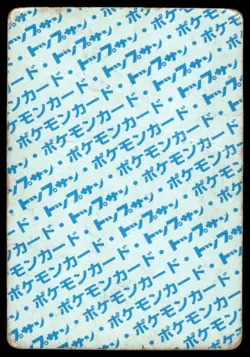 ポケモンカード・トップサン
トップサン・ポケモンカード
ポケモンカード・トップサン・
トップサン・ポケモンカード・
・ポケモンカード・トップサン・
トップサン・ポケモンカード・トップサン
ポケモンカード・トップサン・ポケモンカード
・トップサン・ポケモンカード・トップサン
ポケモンカード・トップサン・ポケモンカード
トップサン・ポケモンカード・トップサン
ポケモンカード・トップサン・ポケモンカード
・トップサン・ポケモンカード・
ポケモンカード・トップサン・
トップサン・ポケモンカード